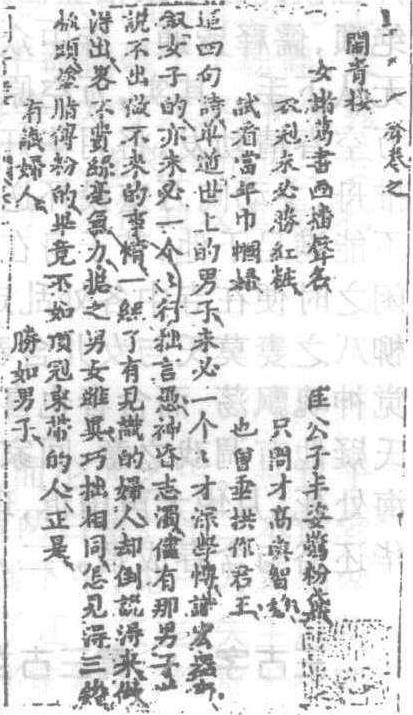 鬧青樓
女諸葛書画播聲名
公子丰姿驚粉黛
衣冠未必勝紅粧
只問才高與智
試看當年巾幗婦
也曾垂拱作君王
這四句詩单道世上的男子未必一个〻才深學博謀宏
叙女子的亦未必一个〻行拙言憑神昏志濁儘有那男子
說不出做不來的事情一經了有見識的婦人却倒說得來做
得出畧不費絲毫氣力揔之男女雖異巧拙相同怎見得三
梳頭塗脂傅粉的畢竟不如頂冠束帶的人正是
有識婦人
勝如男子